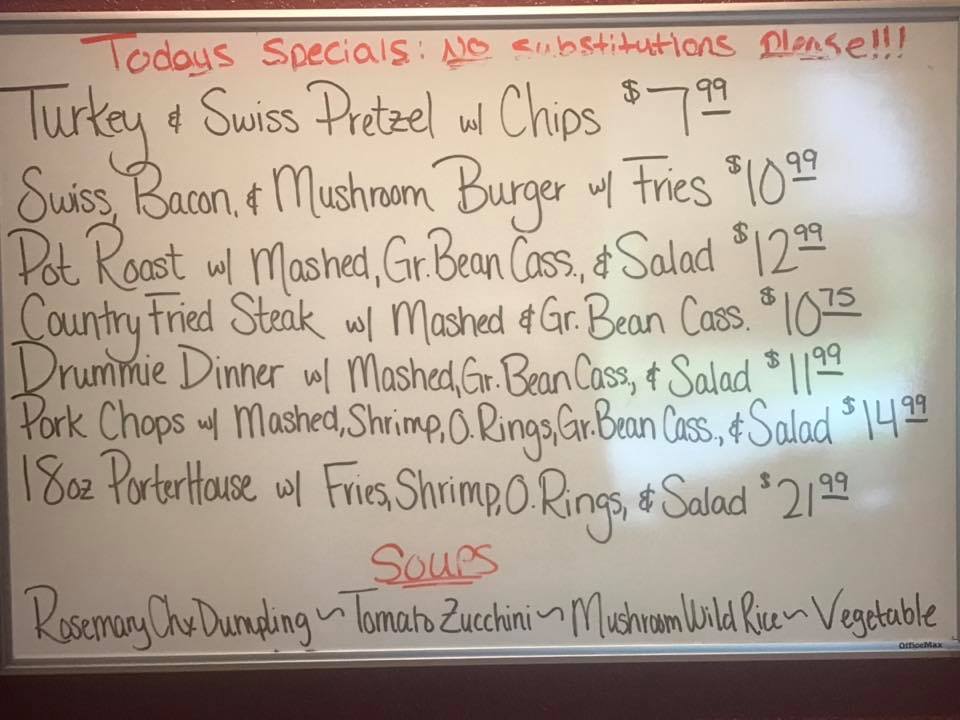 Todays Specials: No substitutions please!!!
Turkey & Swiss Pretzel w/ Chips $7.99
Swiss, Bacon, & Mushroom Burger w/ Fries $10.99
Pot Roast w/ Mashed, Gr. Bean Cass., & Salad $12.99
Country Fried Steak w/ Mashed & Gr. Bean Cass. $10.75
Drummie Dinner w/ Mashed, Gr. Bean Cass., & Salad $11.99
Pork Chops w/ Mashed, Shrimp, O. Rings, Gr. Bean Cass., & Salad $14.99
18oz PorterHouse w/ Fries, Shrimp, O. Rings, & Salad $21.99
Soups
Rosemary Chx Dumpling ~ Tomato Zucchini ~ Mushroom Wild Rice ~ Vegetable
OfficeMax